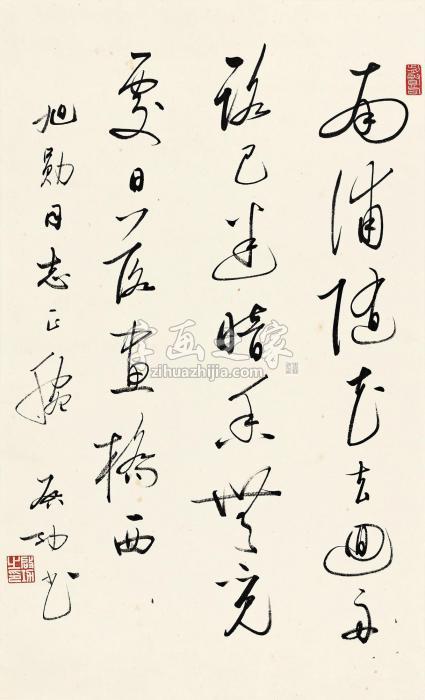 南浦随花去迴舟
路已迷暗香無覓
處日落畫橋西
旭勛同志正腕 啟功書
字画之家
zihuazhijia.com